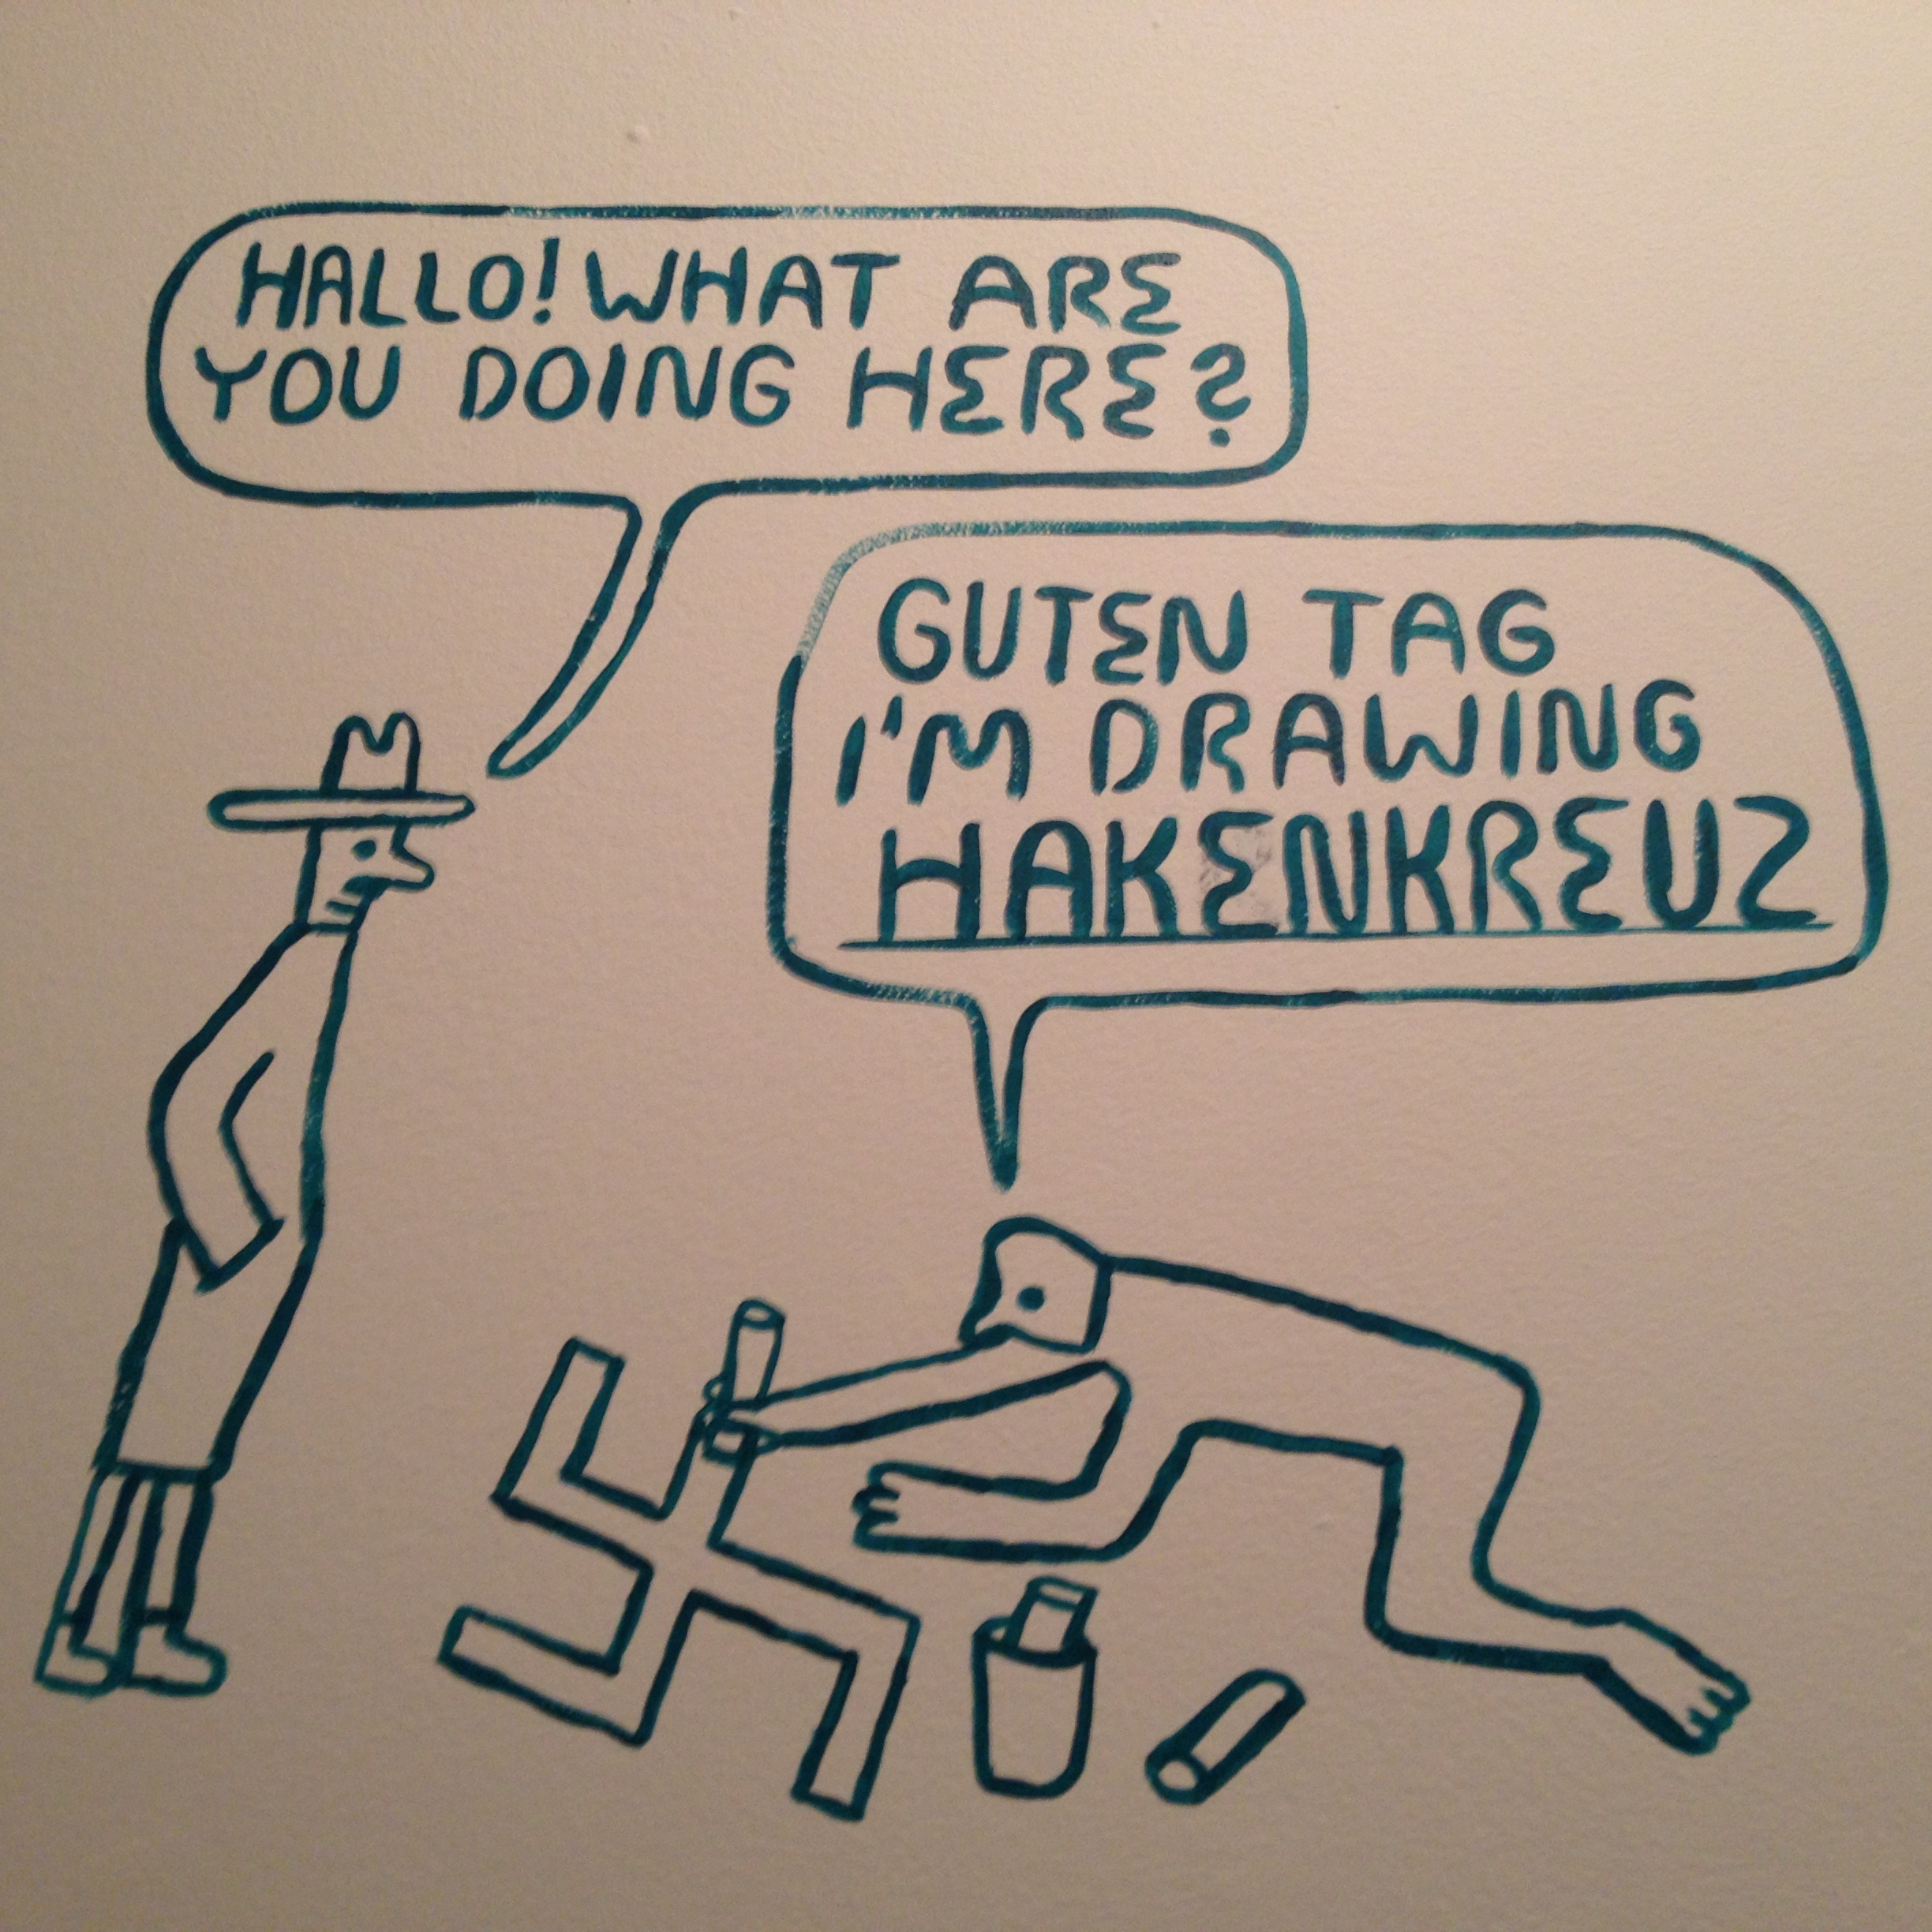 HALLO! WHAT ARE
YOU DOING HERE?
GUTEN TAG
I'M DRAWING
HAKENKREUZ